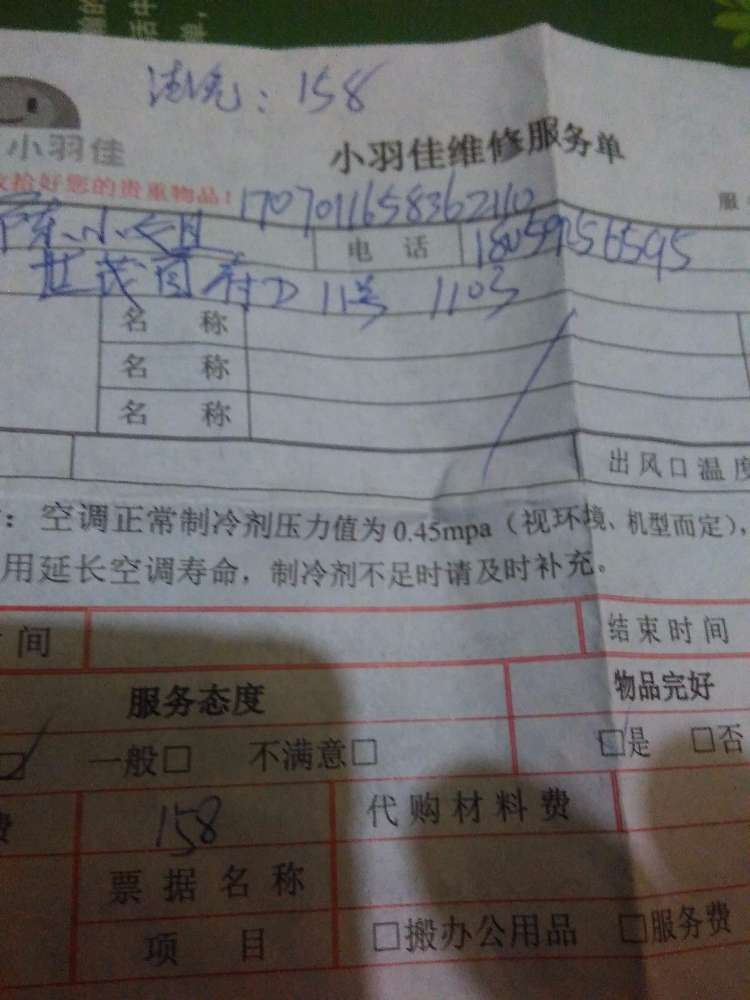 洗凭：158
小羽佳
小羽佳维修服务单
收拾好您的贵重物品！
服
1707011658362110
小姐
电 话
18059256595
世茂国村D 11号 1103
名 称
名 称
名 称
出风口温度
：空调正常制冷剂压力值为0.45mpa（视环境、机型而定），
用延长空调寿命，制冷剂不足时请及时补充。
时间
结束时间
服务态度
物品完好
一般□ 不满意□
□是 □否
费
158
代购材料费
票据名称
项 目
□搬办公用品 □服务费